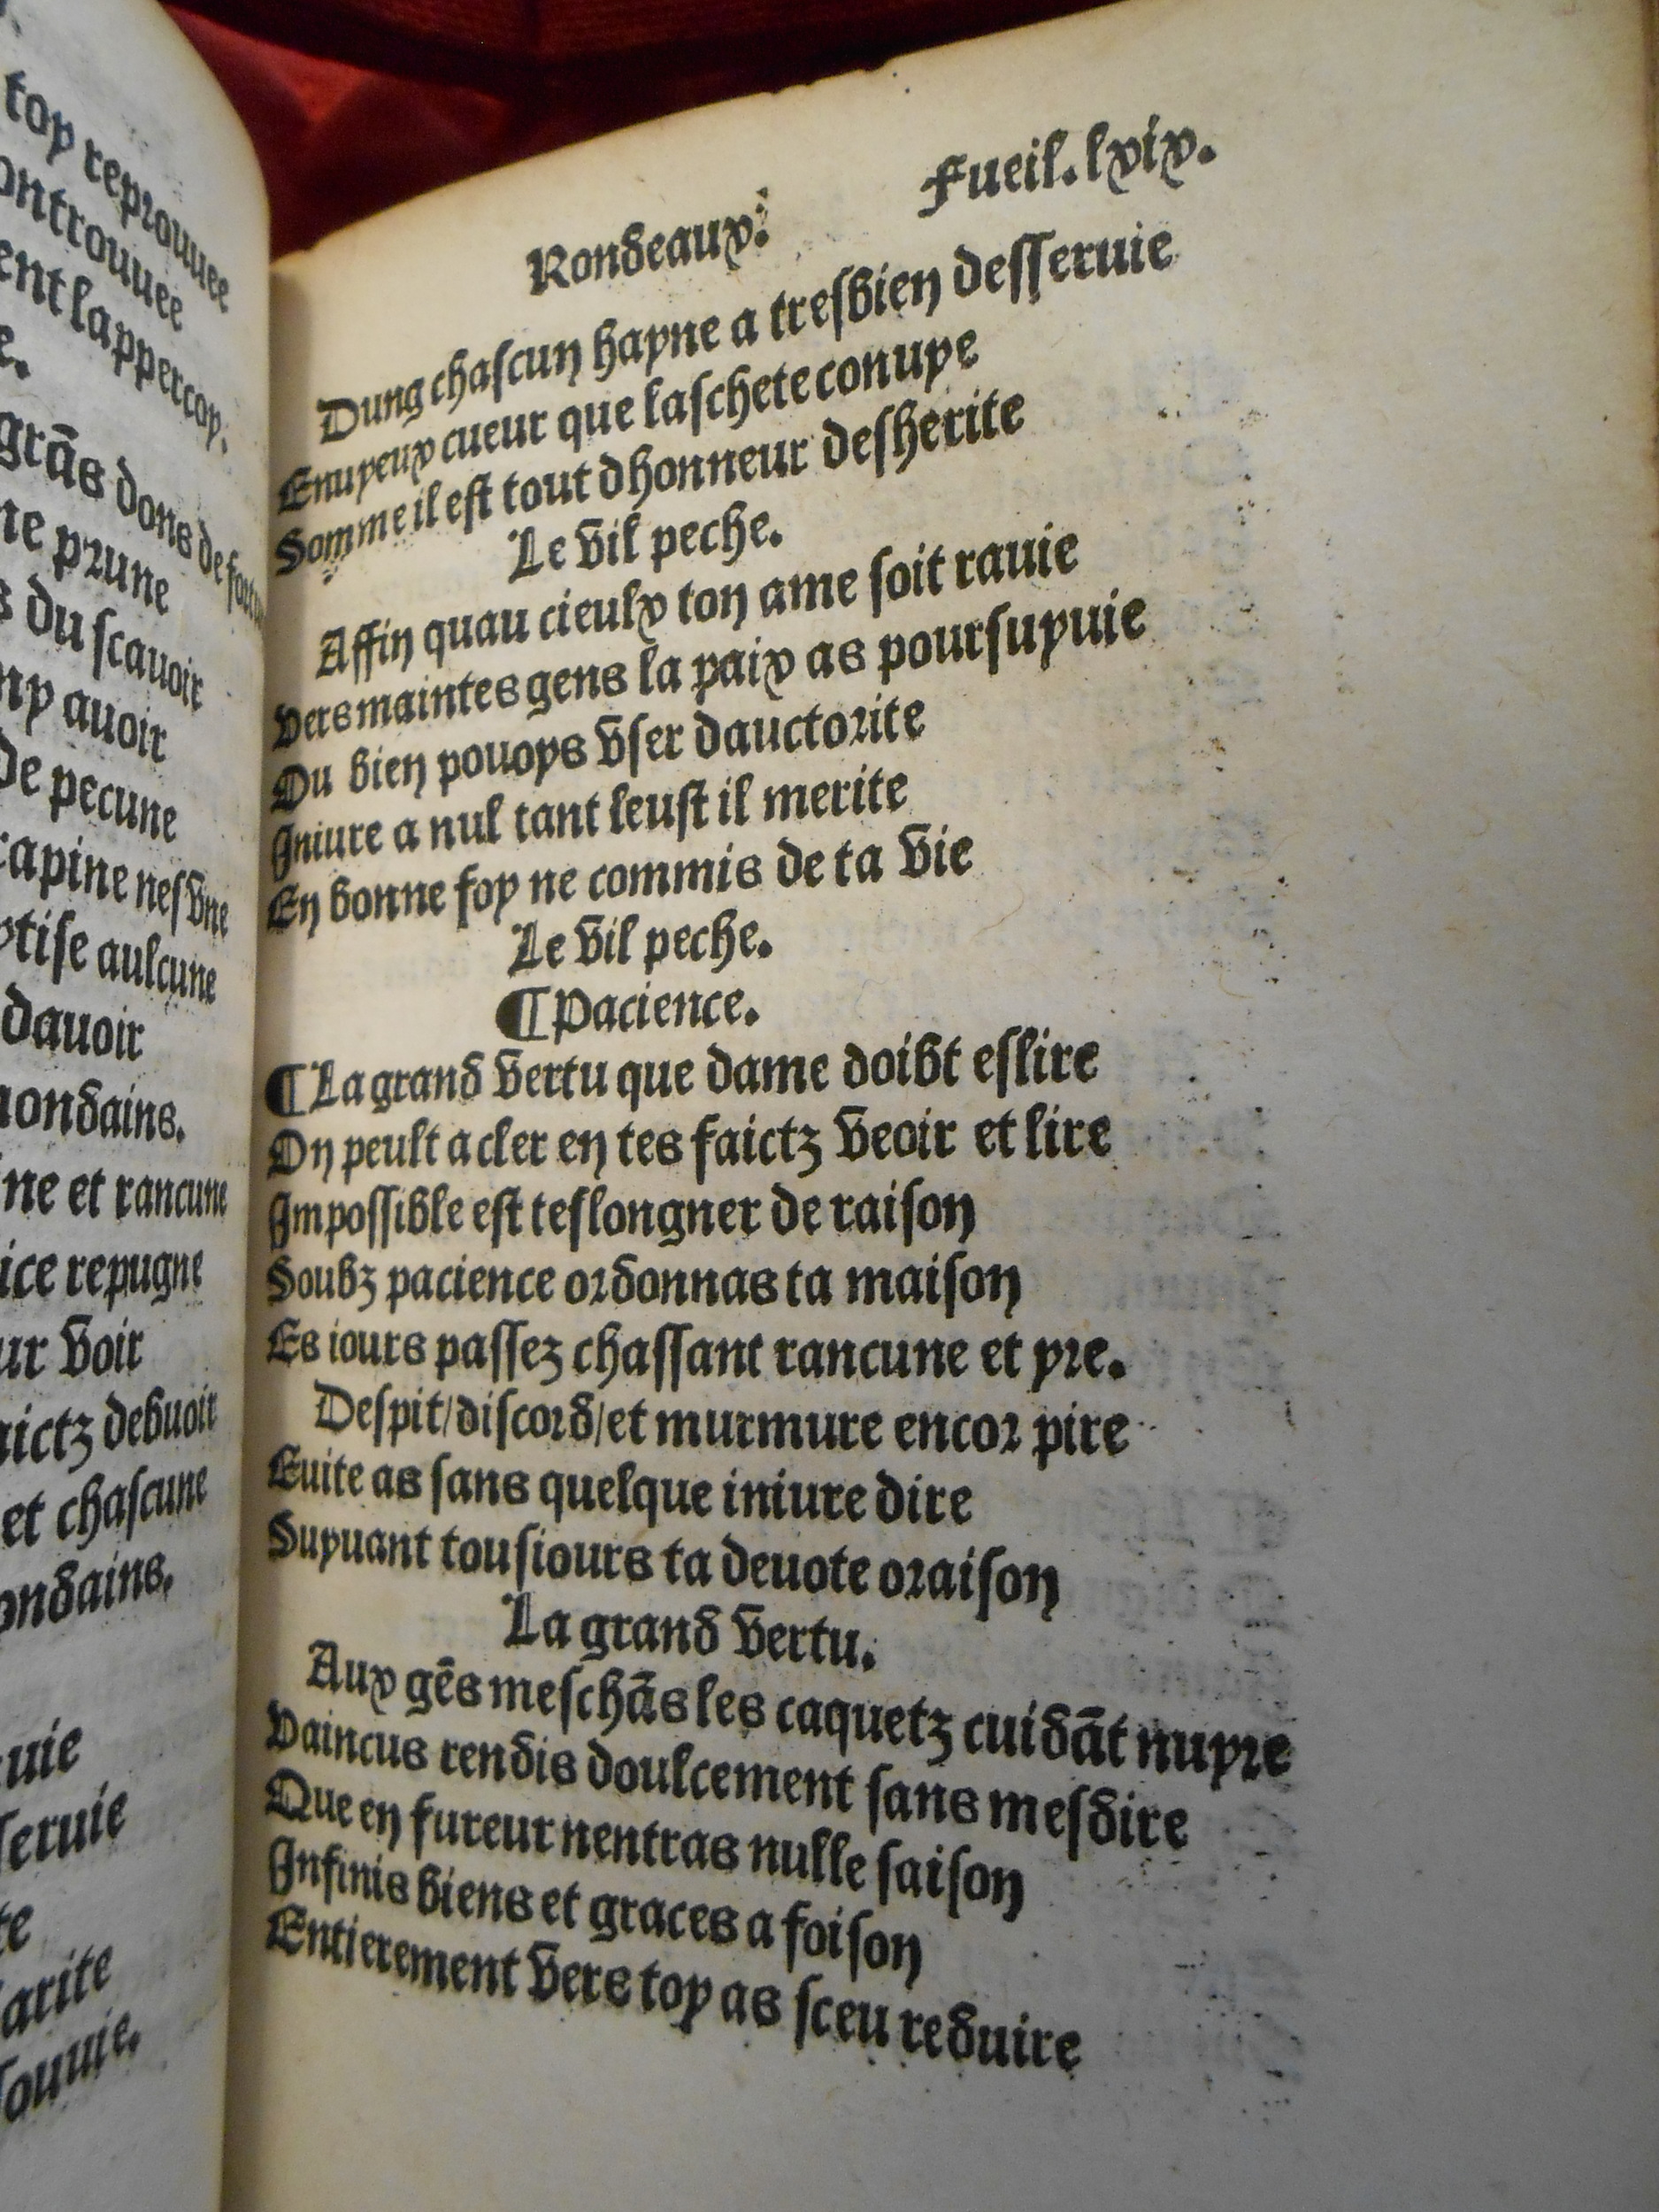 top reprouuee
ontrouuee
ent lappercoy.
e.
grãs dons de
ne prune
s du scauoir
ny auoir
de pecune
rapine nesvne
ptise aulcune
dauoir
mondains.
ine et rancune
ice repugne
ur voir
aictz debuoir
et chascune
ondains.
uie
seruie
te
arite
ouuie.
Rondeaux. Fueil. lxix.
Dung chascun hayne a tresbien desseruie
Enuyeux cueur que laschete conuye
Somme il est tout dhonneur desherite
Le vil peche.
Affin quau cieulx ton ame soit rauie
Vers maintes gens la paix as poursuyuie
Ou bien pouoys vser dauctorite
Iniure a nul tant leust il merite
En bonne foy ne commis de ta vie
Le vil peche.
¶ Pacience.
¶ La grand vertu que dame doibt eslire
On peult a cler en tes faictz veoir et lire
Impossible est teslongner de raison
Soubz pacience ordonnas ta maison
Es iours passez chassant rancune et yre.
Despit/discord/et murmure encor pire
Euite as sans quelque iniure dire
Suyuant tousiours ta deuote oraison
La grand vertu.
Aux gẽs meschãs les caquetz cuidãt nuyre
Vaincus rendis doulcement sans mesdire
Que en fureur nentras nulle saison
Infinis biens et graces a foison
Entierement vers toy as sceu reduire